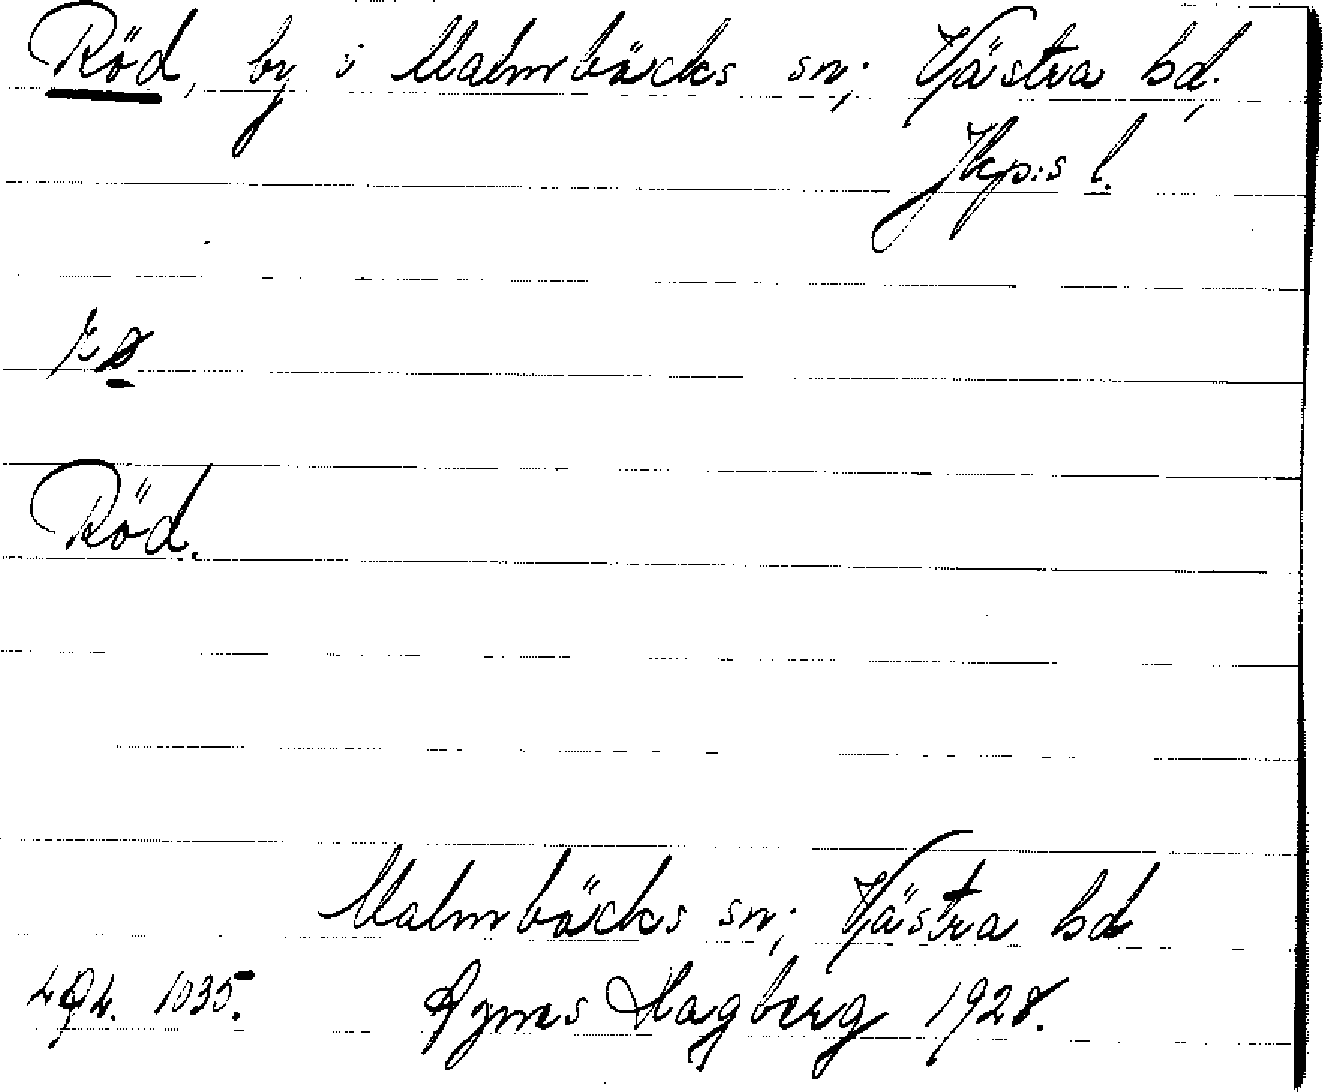 Röd, by i Malmbäcks sn; Västra hd,
Jkp:s l.
Röd.
Malmbäcks sn; Västra hd
1035. Agnes Hagberg 1928.